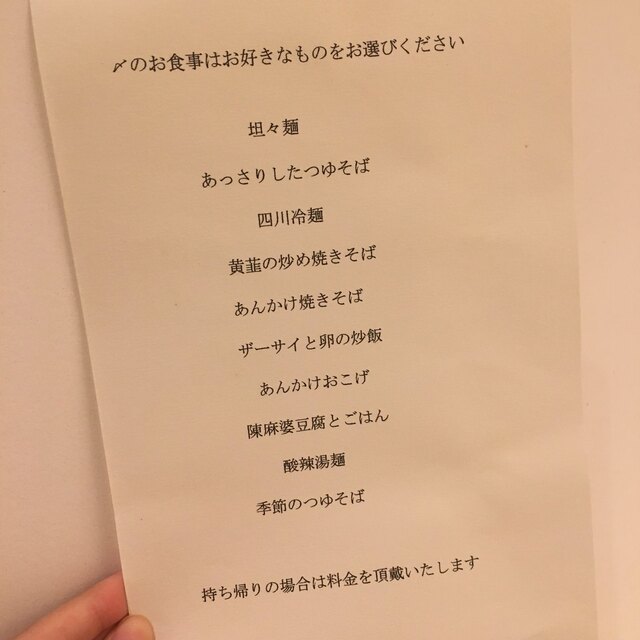 〆のお食事はお好きなものをお選びください
坦々麺
あっさりしたつゆそば
四川冷麺
黄韮の炒め焼きそば
あんかけ焼きそば
ザーサイと卵の炒飯
あんかけおこげ
陳麻婆豆腐とごはん
酸辣湯麺
季節のつゆそば
持ち帰りの場合は料金を頂戴いたします